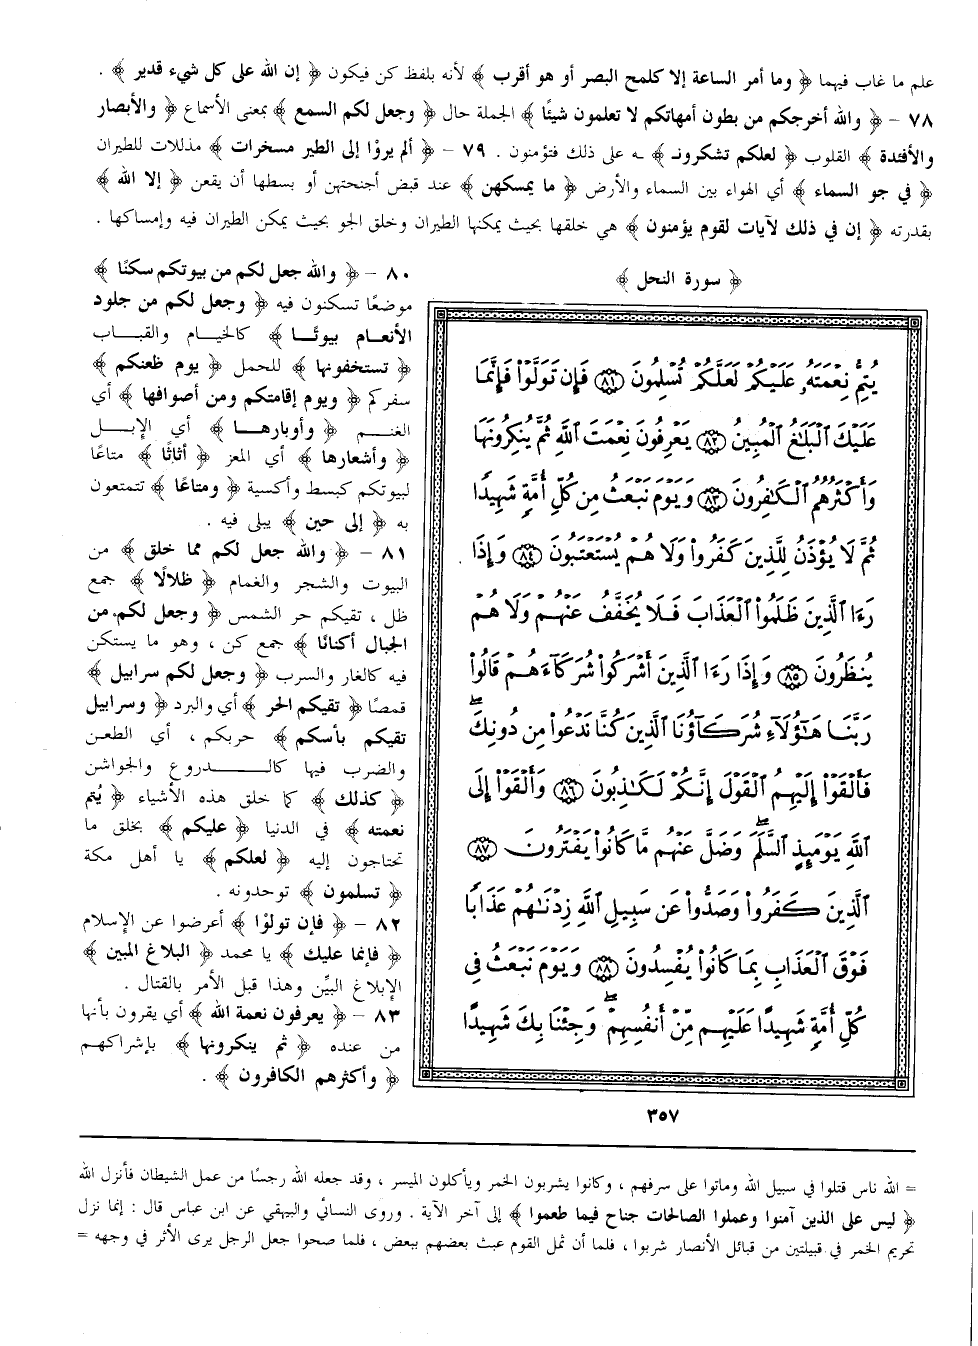 علم ما غاب فيهما ﴿ وما أمر الساعة إلا كلمح البصر أو هو أقرب ﴾ لأنه بلفظ كن فيكون ﴿ إن الله على كل شيء قدير ﴾ .
٧٨ – ﴿ والله أخرجكم من بطون أمهاتكم لا تعلمون شيئًا ﴾ الجملة حال ﴿ وجعل لكم السمع ﴾ بمعنى الأسماع ﴿ والأبصار
والأفئدة ﴾ القلوب ﴿ لعلكم تشكرون ﴾ ـه على ذلك فتؤمنون . ٧٩ – ﴿ ألم يروْا إلى الطير مسخرات ﴾ مذللات للطيران
﴿ في جو السماء ﴾ أي الهواء بين السماء والأرض ﴿ ما يمسكهن ﴾ عند قبض أجنحتهن أو بسطها أن يقعن ﴿ إلا الله ﴾
بقدرته ﴿ إن في ذلك لآيات لقوم يؤمنون ﴾ هي خلقها بحيث يمكنها الطيران وخلق الجو بحيث يمكن الطيران فيه وإمساكها .
﴿ سورة النحل ﴾
يُتِمُّ نِعْمَتَهُۥ عَلَيْكُمْ لَعَلَّكُمْ تُسْلِمُونَ ۝٨١ فَإِن تَوَلَّوْا۟ فَإِنَّمَا
عَلَيْكَ ٱلْبَلَٰغُ ٱلْمُبِينُ ۝٨٢ يَعْرِفُونَ نِعْمَتَ ٱللَّهِ ثُمَّ يُنكِرُونَهَا
وَأَكْثَرُهُمُ ٱلْكَٰفِرُونَ ۝٨٣ وَيَوْمَ نَبْعَثُ مِن كُلِّ أُمَّةٍ شَهِيدًا
ثُمَّ لَا يُؤْذَنُ لِلَّذِينَ كَفَرُوا۟ وَلَا هُمْ يُسْتَعْتَبُونَ ۝٨٤ وَإِذَا
رَءَا ٱلَّذِينَ ظَلَمُوا۟ ٱلْعَذَابَ فَلَا يُخَفَّفُ عَنْهُمْ وَلَا هُمْ
يُنظَرُونَ ۝٨٥ وَإِذَا رَءَا ٱلَّذِينَ أَشْرَكُوا۟ شُرَكَآءَهُمْ قَالُوا۟
رَبَّنَا هَٰٓؤُلَآءِ شُرَكَآؤُنَا ٱلَّذِينَ كُنَّا نَدْعُوا۟ مِن دُونِكَ ۖ
فَأَلْقَوْا۟ إِلَيْهِمُ ٱلْقَوْلَ إِنَّكُمْ لَكَٰذِبُونَ ۝٨٦ وَأَلْقَوْا۟ إِلَى
ٱللَّهِ يَوْمَئِذٍ ٱلسَّلَمَ ۖ وَضَلَّ عَنْهُم مَّا كَانُوا۟ يَفْتَرُونَ ۝٨٧
ٱلَّذِينَ كَفَرُوا۟ وَصَدُّوا۟ عَن سَبِيلِ ٱللَّهِ زِدْنَٰهُمْ عَذَابًا
فَوْقَ ٱلْعَذَابِ بِمَا كَانُوا۟ يُفْسِدُونَ ۝٨٨ وَيَوْمَ نَبْعَثُ فِى
كُلِّ أُمَّةٍ شَهِيدًا عَلَيْهِم مِّنْ أَنفُسِهِمْ ۖ وَجِئْنَا بِكَ شَهِيدًا
٣٥٧
٨٠ – ﴿ والله جعل لكم من بيوتكم سكنًا ﴾
موضعًا تسكنون فيه ﴿ وجعل لكم من جلود
الأنعام بيوتًا ﴾ كالخيام والقباب
﴿ تستخفونها ﴾ للحمل ﴿ يوم ظعنكم ﴾
سفركم ﴿ ويوم إقامتكم ومن أصوافها ﴾ أي
الغنم ﴿ وأوبارها ﴾ أي الإبل
﴿ وأشعارها ﴾ أي المعز ﴿ أثاثًا ﴾ متاعًا
لبيوتكم كبسط وأكسية ﴿ ومتاعًا ﴾ تتمتعون
به ﴿ إلى حين ﴾ يبلى فيه .
٨١ – ﴿ والله جعل لكم مما خلق ﴾ من
البيوت والشجر والغمام ﴿ ظلالًا ﴾ جمع
ظل ، تقيكم حر الشمس ﴿ وجعل لكم من
الجبال أكنانًا ﴾ جمع كن ، وهو ما يستكن
فيه كالغار والسرب ﴿ وجعل لكم سرابيل ﴾
قمصًا ﴿ تقيكم الحر ﴾ أي والبرد ﴿ وسرابيل
تقيكم بأسكم ﴾ حربكم ، أي الطعن
والضرب فيها كالدروع والجواشن
﴿ كذلك ﴾ كما خلق هذه الأشياء ﴿ يُتم
نعمته ﴾ في الدنيا ﴿ عليكم ﴾ بخلق ما
تحتاجون إليه ﴿ لعلكم ﴾ يا أهل مكة
﴿ تسلمون ﴾ توحدونه .
٨٢ – ﴿ فإن تولوْا ﴾ أعرضوا عن الإسلام
﴿ فإنما عليك ﴾ يا محمد ﴿ البلاغ المبين ﴾
الإبلاغ البيِّن وهذا قبل الأمر بالقتال .
٨٣ – ﴿ يعرفون نعمة الله ﴾ أي يقرون بأنها
من عنده ﴿ ثم ينكرونها ﴾ بإشراكهم
﴿ وأكثرهم الكافرون ﴾ .
= الله ناس قتلوا في سبيل الله وماتوا على سرفهم ، وكانوا يشربون الخمر ويأكلون الميسر ، وقد جعله الله رجسًا من عمل الشيطان فأنزل الله
﴿ ليس على الذين آمنوا وعملوا الصالحات جناح فيما طعموا ﴾ إلى آخر الآية . وروى النسائي والبيهقي عن ابن عباس قال : إنما نزل
تحريم الخمر في قبيلتين من قبائل الأنصار شربوا ، فلما أن ثمل القوم عبث بعضهم ببعض ، فلما صحوا جعل الرجل يرى الأثر في وجهه =